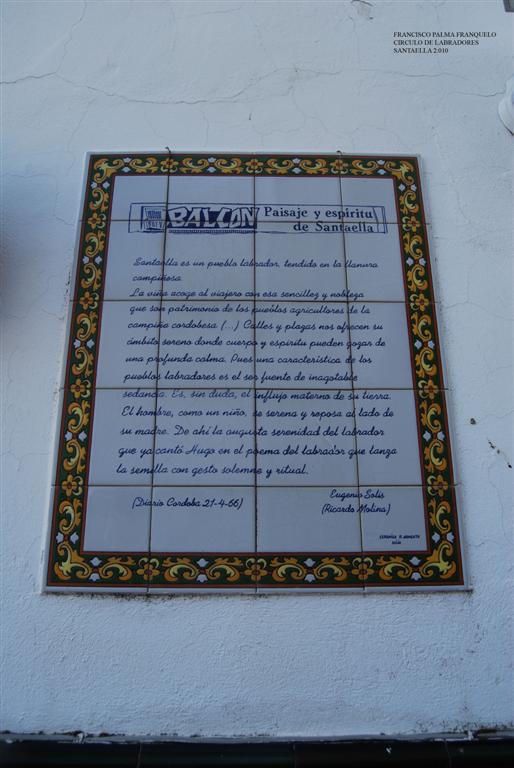 FRANCISCO PALMA FRANQUELO
CIRCULO DE LABRADORES
SANTAELLA 2.010
BALCON Paisaje y espiritu
de Santaella
Santaella es un pueblo labrador, tendido en la llanura
campiñosa.
La viña acoge al viajero con esa sencillez y nobleza
que son patrimonio de los pueblos agricultores de la
campiña cordobesa (...) Calles y plazas nos ofrecen su
ámbito sereno donde cuerpo y espiritu pueden gozar de
una profunda calma. Pues una caracteristica de los
pueblos labradores es el ser fuente de inagotable
sedancia. Es, sin duda, el influjo materno de su tierra.
El hombre, como un niño, se serena y reposa al lado de
su madre. De ahí la augusta serenidad del labrador
que ya cantó Hugo en el poema del labrador que lanza
la semilla con gesto solemne y ritual.
(Diario Cordoba 21-4-66)
Eugenio Solis
(Ricardo Molina)